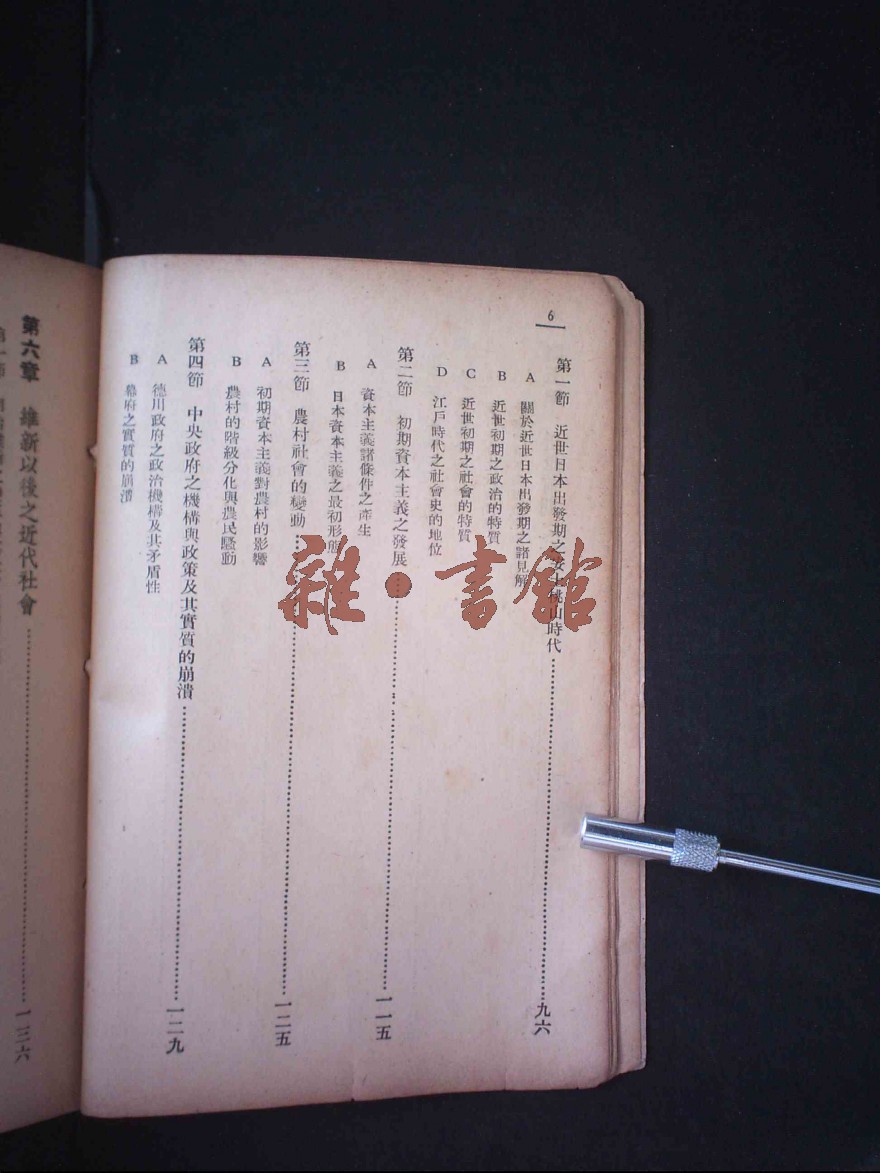 6
第一節　近世日本出發期之安土桃山時代……九六
A　關於近世日本出發期之諸見解
B　近世初期之政治的特質
C　近世初期之社會的特質
D　江戶時代之社會史的地位
第二節　初期資本主義之發展……一一五
A　資本主義諸條件之產生
B　日本資本主義之最初形態
第三節　農村社會的變動……一二五
A　初期資本主義對農村的影響
B　農村的階級分化與農民騷動
第四節　中央政府之機構與政策及其實質的崩潰……一二九
A　德川政府之政治機構及其矛盾性
B　幕府之實質的崩潰
第六章　維新以後之近代社會……一三六
第一節
雜·書館